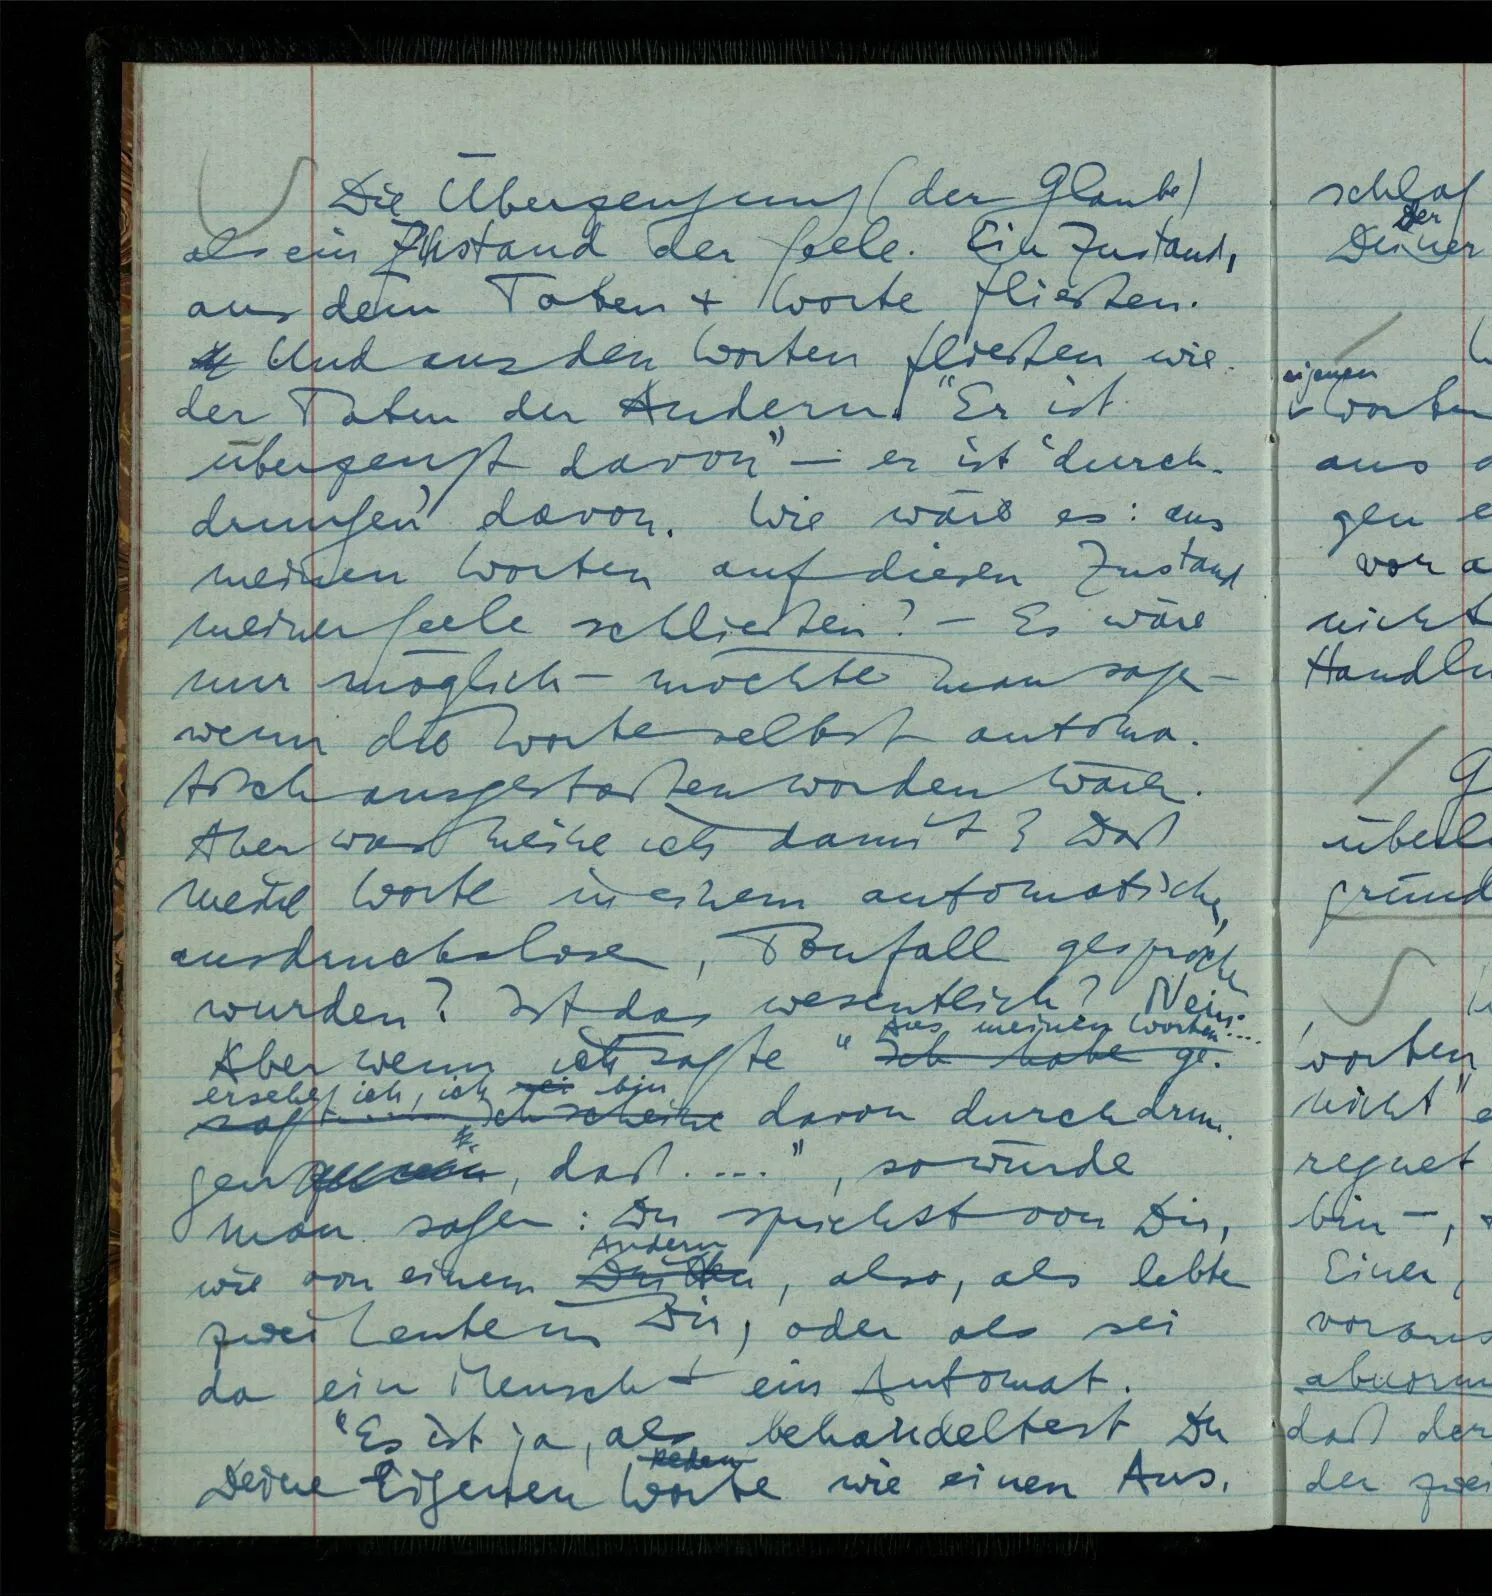 Die Überzeugung (der Glaube)
als ein Zustand der Seele. Ein Zustand,
aus dem Taten + Worte fließen.
Und aus den Worten fließen wie
der Taten der Andern. "Er ist
überzeugt davon" – er ist 'durch-
drungen' davon. Wie wäre es: aus
meinen Worten auf diesen Zustand
meiner Seele schließen? – Es wäre
nur möglich – möchte man sagen –
wenn die Worte selbst automa-
tisch ausgestoßen worden wären.
Aber was meine ich damit? Daß
meine Worte in einem automatischen,
ausdruckslosen, Tonfall gesprochen
wurden? Ist das wesentlich? Nein....
Aus meinen Worten
Aber wenn ich sagte " Ich habe ge-
ersehe ich, ich sei bin
sagt ..... Ich scheine davon durchdrun-
gen, daß ....", so würde
man sagen: Du sprichst von Dir,
Andern
wie von einem Dritten, also, als lebten
zwei Leute in Dir, oder als sei
da ein Mensch + ein Automat.
"Es ist ja, als behandeltest Du
Reden
Deine Eigenen Worte wie einen Aus-
schlag
Der
Deiner
eigenen
Worten
aus
gen
vor
nicht
Handlu
überl
gründ
worten
nicht"
regnet
bin –,
Einer,
voraus
abnorm
daß der
der zwei